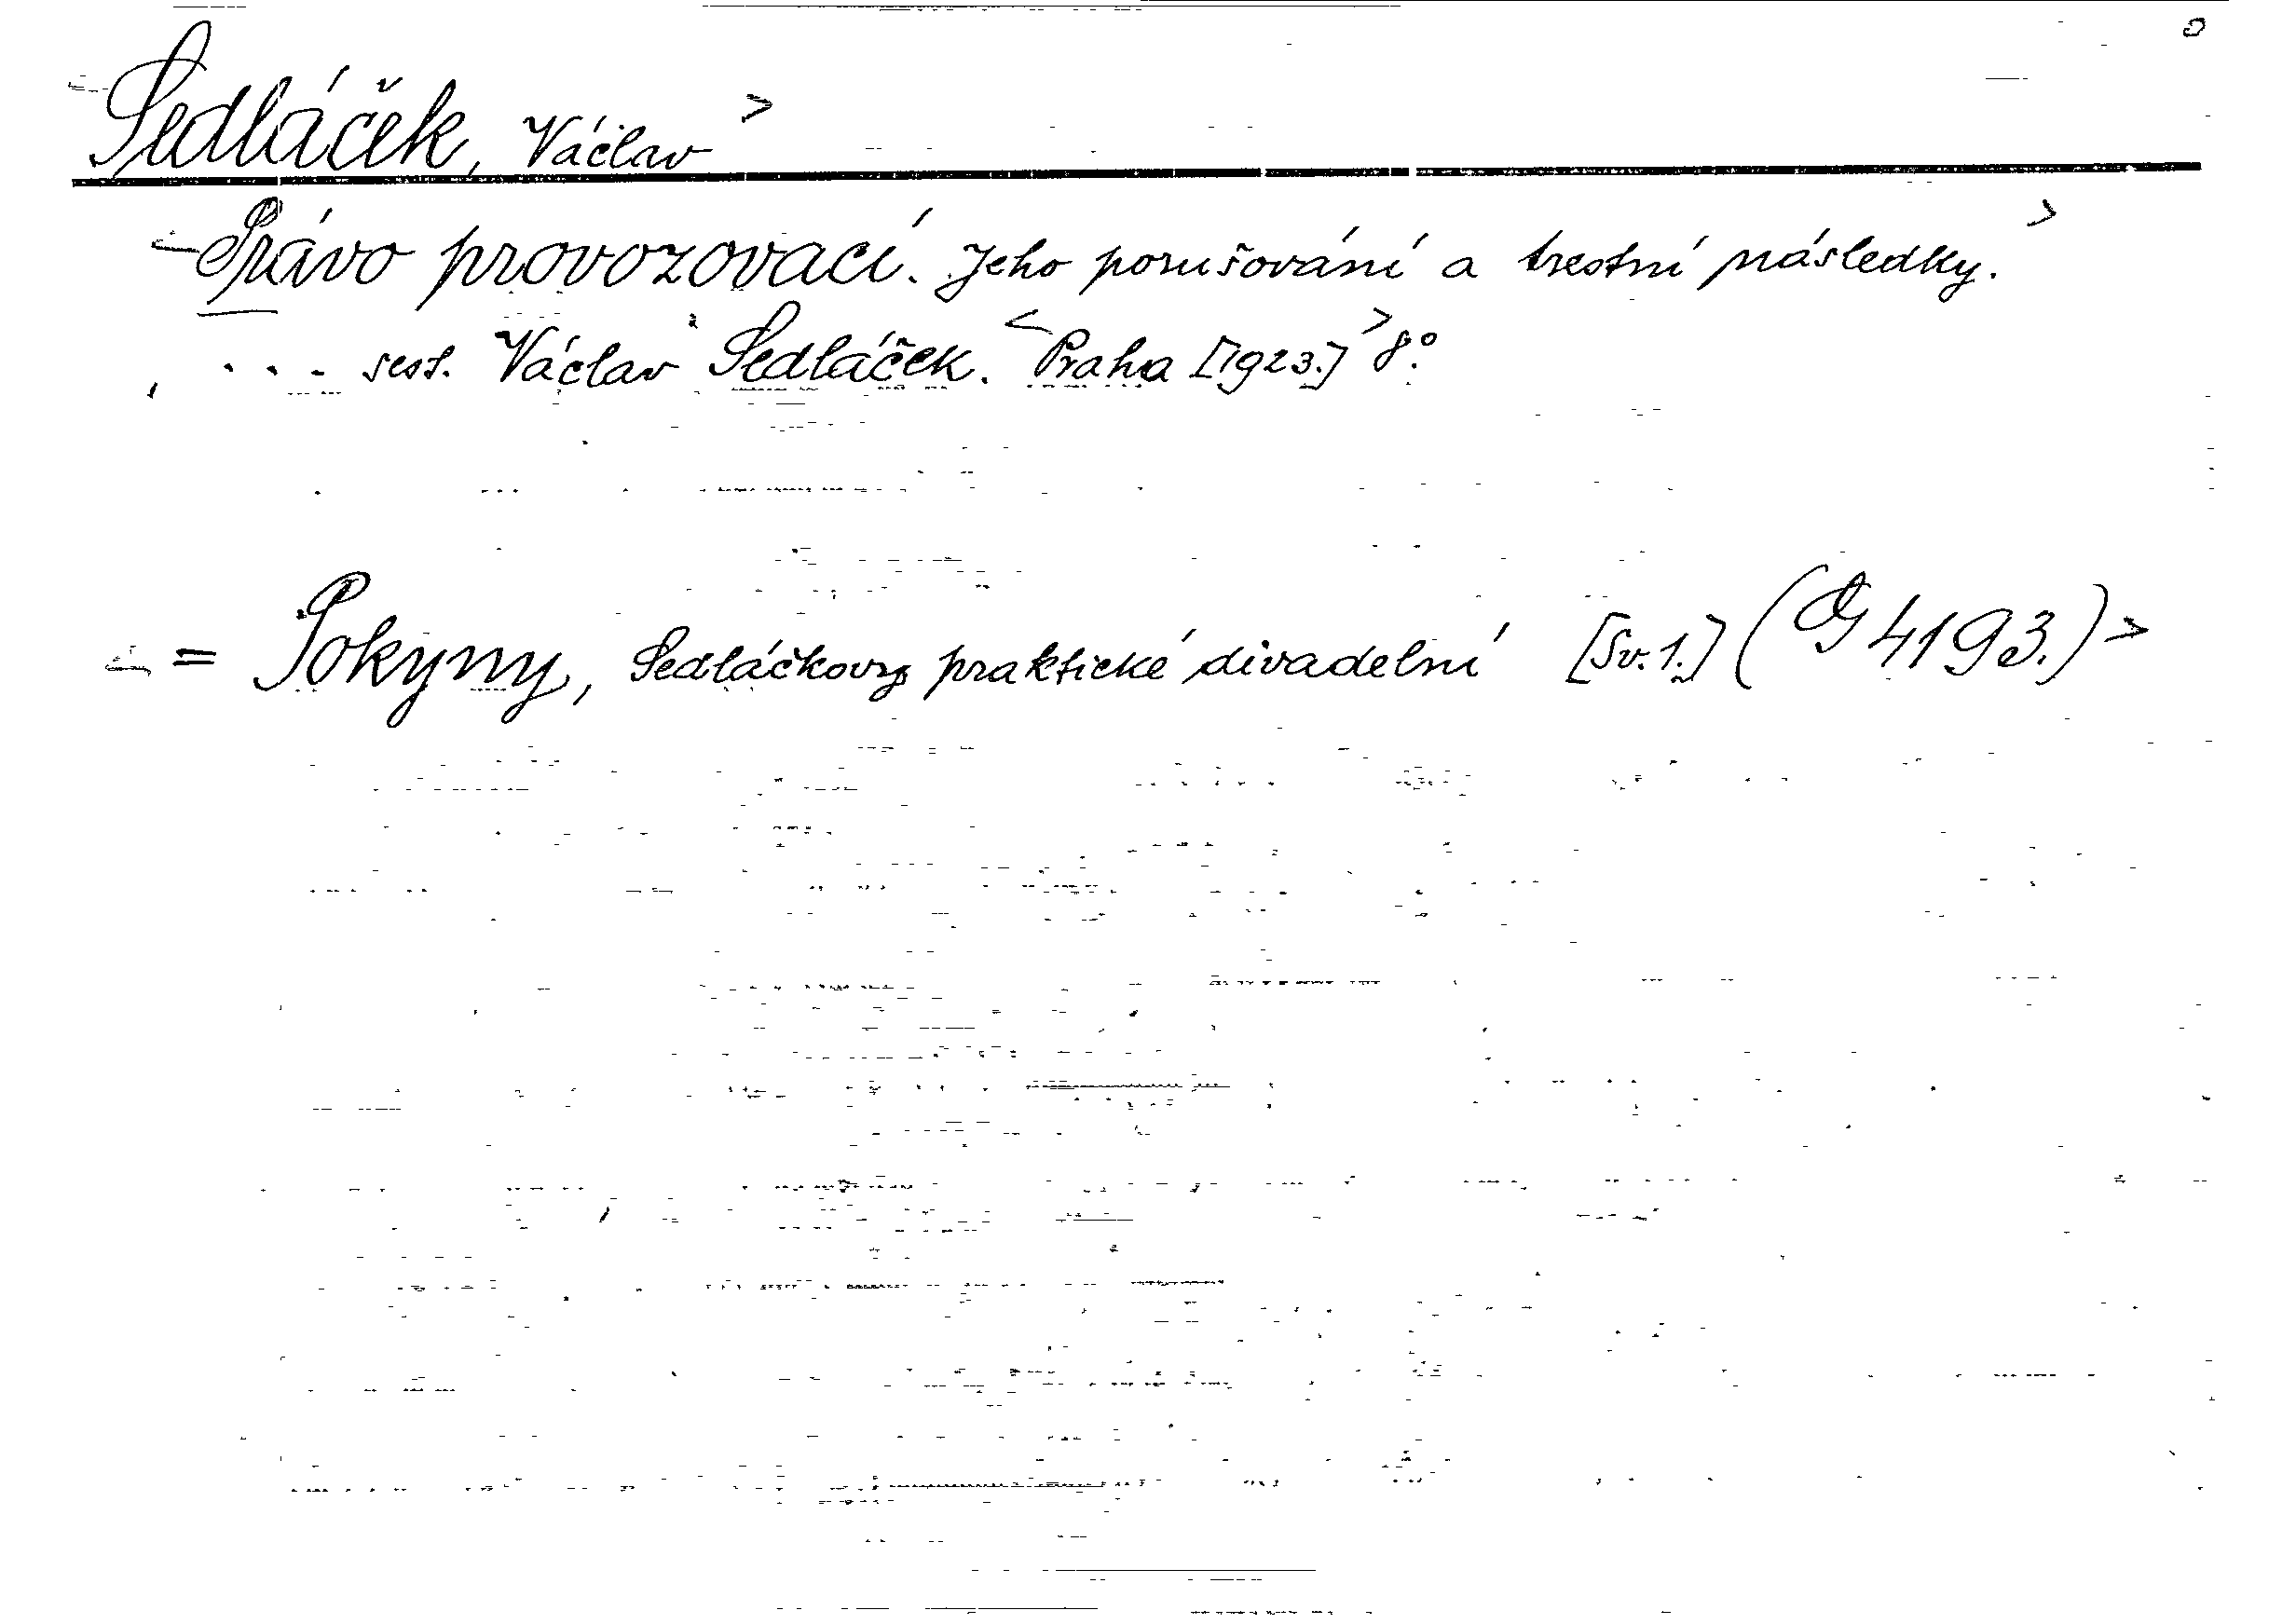 Sedláček, Václav >
< Právo provozovací. Jeho porušování a trestní následky. >
. . . sest. Václav Sedláček. < Praha [1923.] > 8°.
< = Pokyny, Sedláčkovy praktické divadelní [Sv. 1.] (G 4193.) >